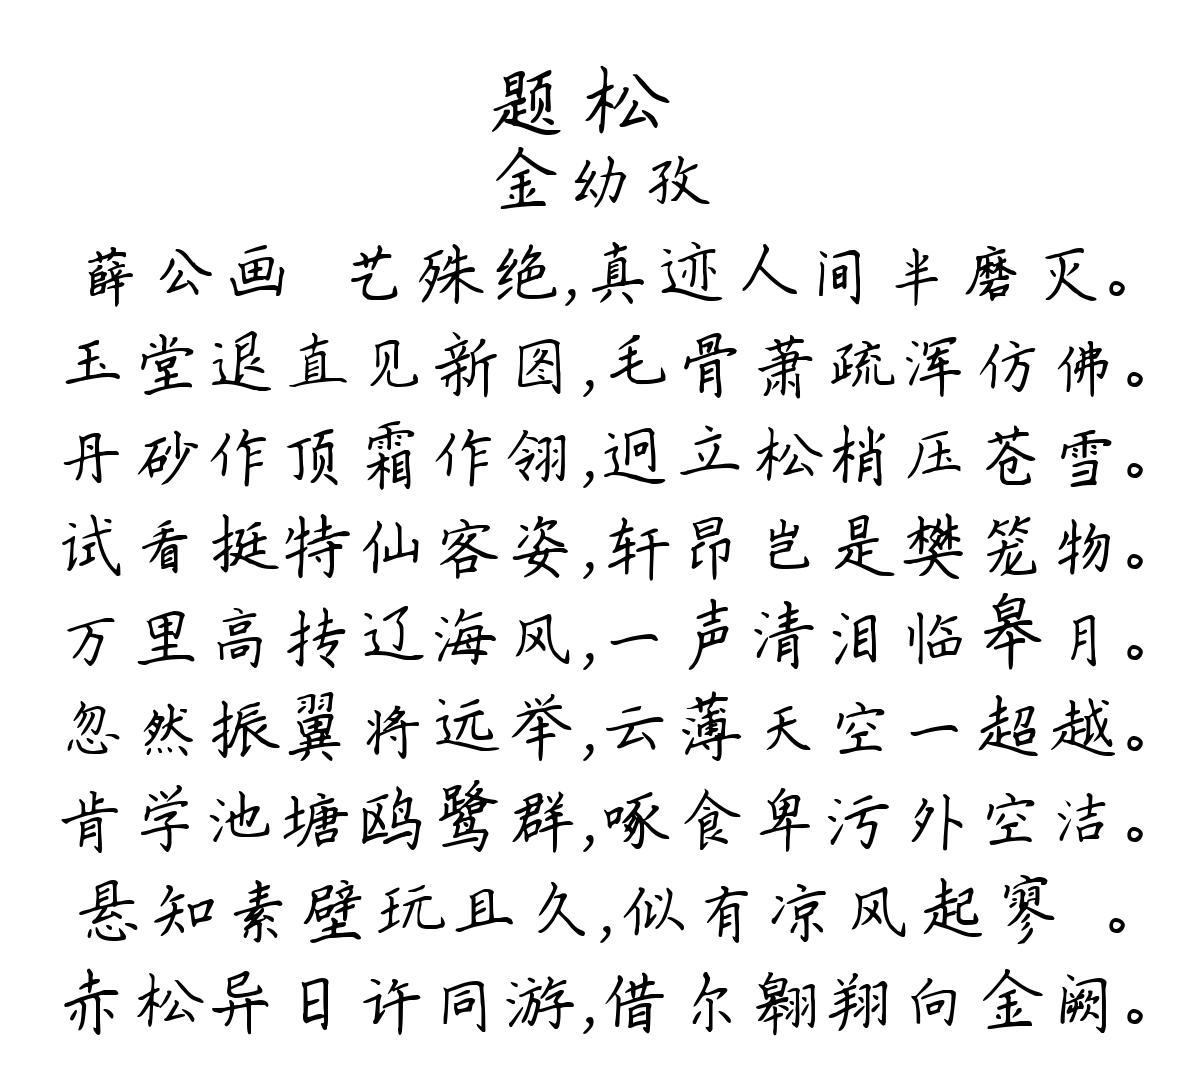 题松
金幼孜
薛公画 艺殊绝,真迹人间半磨灭。
玉堂退直见新图,毛骨萧疏浑仿佛。
丹砂作顶霜作翎,迥立松梢压苍雪。
试看挺特仙客姿,轩昂岂是樊笼物。
万里高抟辽海风,一声清泪临皋月。
忽然振翼将远举,云薄天空一超越。
肯学池塘鸥鹭群,啄食卑污外空洁。
悬知素壁玩且久,似有凉风起寥 。
赤松异日许同游,借尔翱翔向金阙。